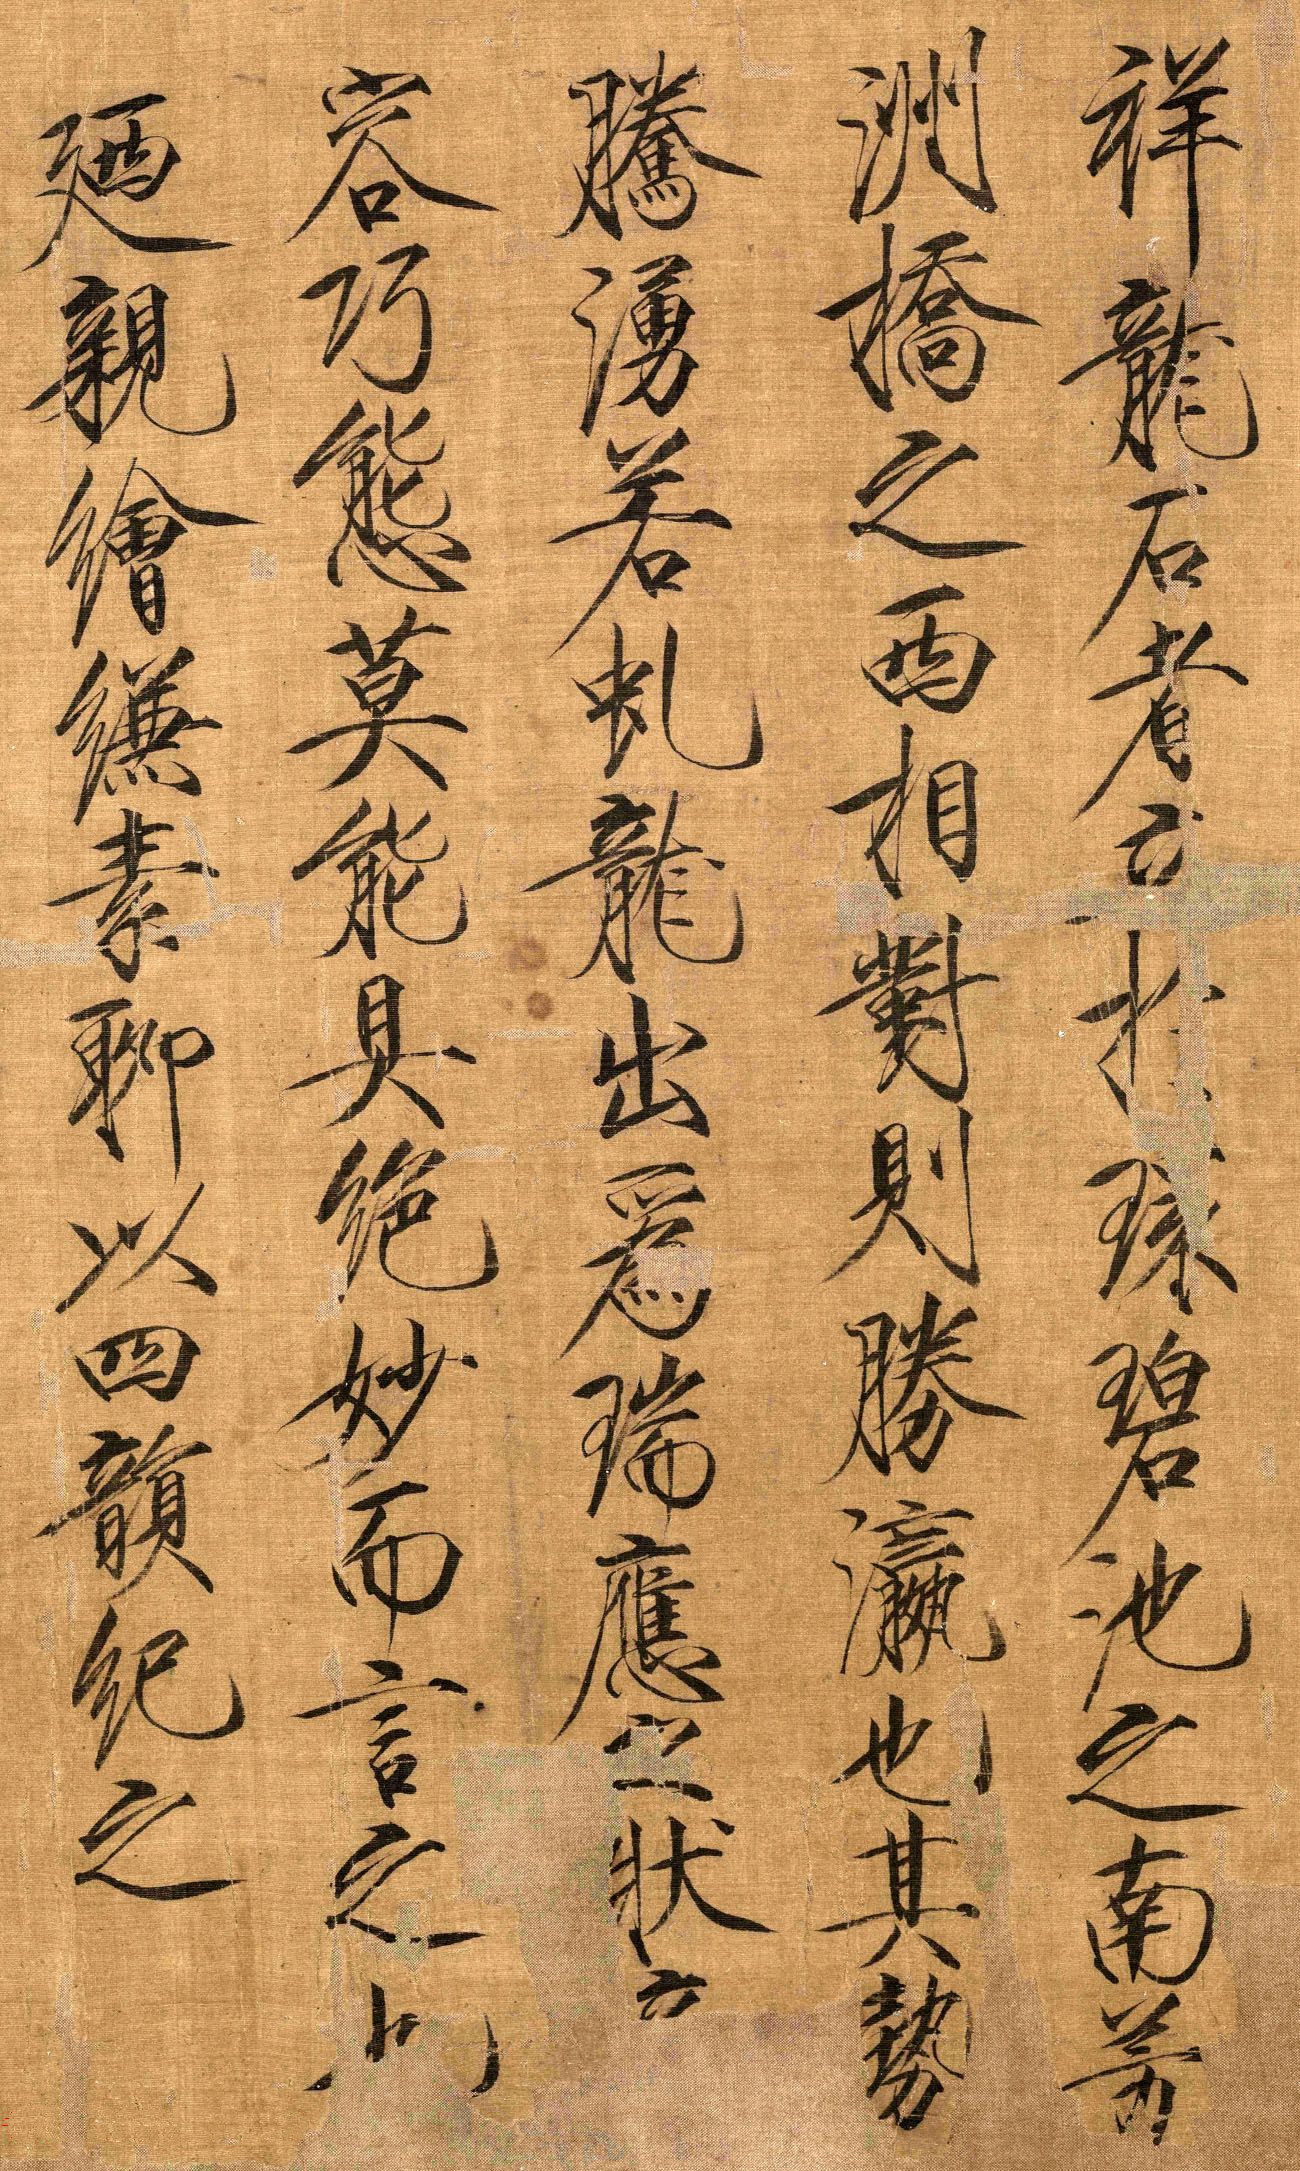 祥龍石者立於環碧池之南芳
洲橋之西相對則勝瀛也其勢
騰湧若虬龍出爲瑞應之狀奇
容巧態莫能具絕妙而言之也
廼親繪縑素聊以四韻紀之